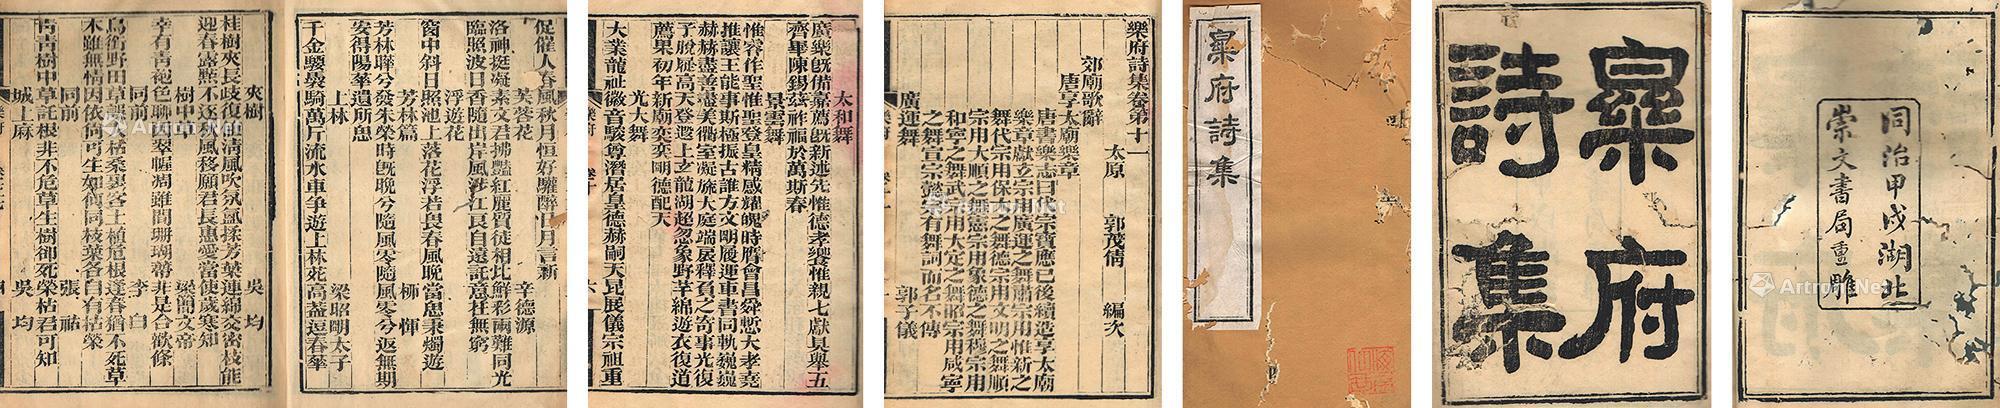 同治甲戌湖北
崇文書局重雕
樂府
詩集
樂府詩集
樂府詩集卷第十一
太原 郭茂倩 編次
郊廟歌辭
唐享太廟樂章
唐書樂志曰代宗寶應已後續造享太廟
樂章獻玄宗用廣運之舞肅宗用惟新之
舞代宗用保大之舞德宗用文明之舞順
宗用大順之舞憲宗用象德之舞穆宗用
和寧之舞武宗用大定之舞昭宗用咸寧
之舞宣宗懿宗有舞詞而名不傳
廣運舞 郭子儀
太和舞
廣樂既備嘉薦既新述先惟德孝饗惟親七獻具舉五
齊畢陳錫茲祚福於萬斯春
景雲舞
惟容作聖惟聖登皇精感耀魄時膺會昌舜慙大孝堯
推讓王能事斯極振古誰方文明履運車書同軌巍巍
赫赫盡善盡美衢室凝旒大庭端扆釋負之寄事光復
子脫屣高天登遐上玄龍湖超忽象野芊綿遊衣復道
薦果初年新廟奕奕明德配天
光大舞
大業龍祉徽音駿尊潛居皇德赫嗣天昆展儀宗祖重
促催人春風秋月恒好驩醉日月言新
芙蓉花 辛德源
洛神挺凝素文君拂豔紅麗質徒相比鮮彩兩難同光
臨照波日香隨出岸風涉江良自遠託意在無窮
浮遊花
窗中斜日照池上落花浮若畏春風晚當思秉燭遊
芳林篇 柳惲
芳林曄兮發朱榮時既晚兮隨風零隨風零兮返無期
安得陽華遺所思
上林 梁昭明太子
千金驟裊騎萬斤流水車爭遊上林苑高蓋逗春華
夾樹 吳均
桂樹夾長歧復值清風吹氛氳揉芳葉連綿交密枝能
迎春露點不逐秋風移願君長惠愛當使歲寒知
樹中草 梁簡文帝
幸有青袍色聊因翠幄凋雖間珊瑚蔕非是合歡條
同前 李白
鳥銜野田草誤入枯桑裏客土植危根逢春猶不死草
木雖無情因依尚可生如何同枝葉各自有枯榮
同前 張祜
青青樹中草託根非不危草生樹卻死榮枯君可知
城上麻 吳均